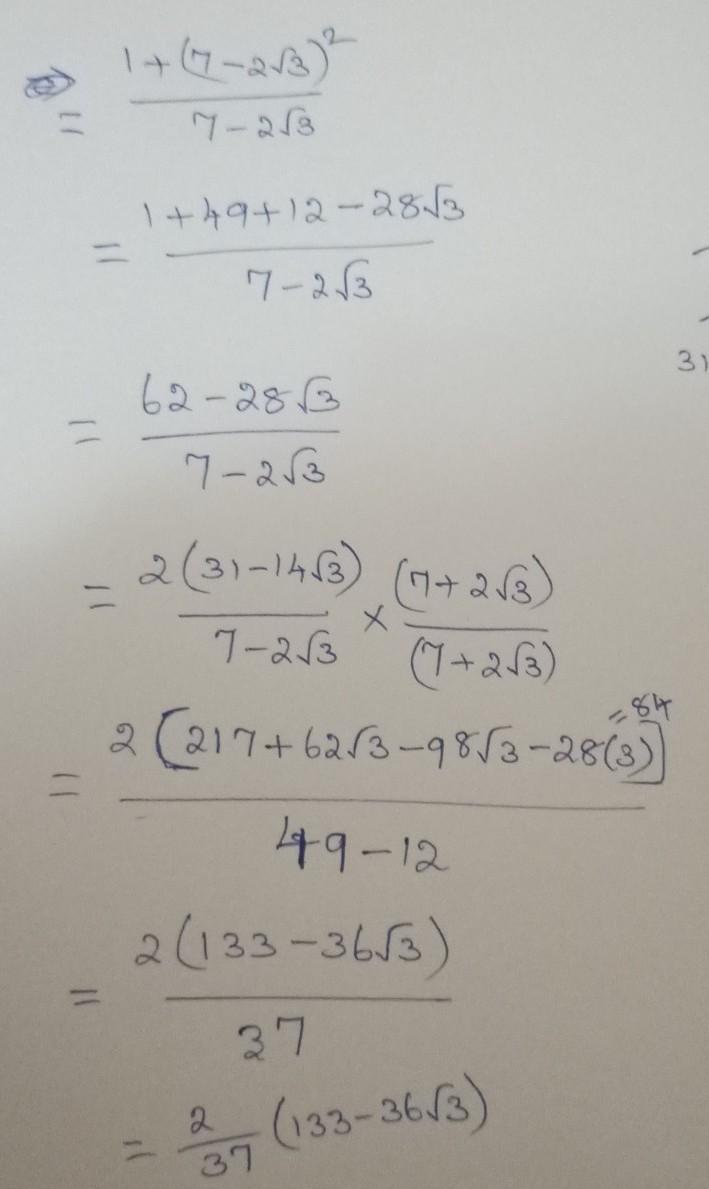 1+(7-2√3)²
= 7-2√3
1+49+12-28√3
= 7-2√3
31
62-28√3
= 7-2√3
= 2(31-14√3) × (7+2√3)
7-2√3 (7+2√3)
= 84
2[217+62√3-98√3-28(3)]
= 49-12
2(133-36√3)
= 37
= 2/37 (133-36√3)